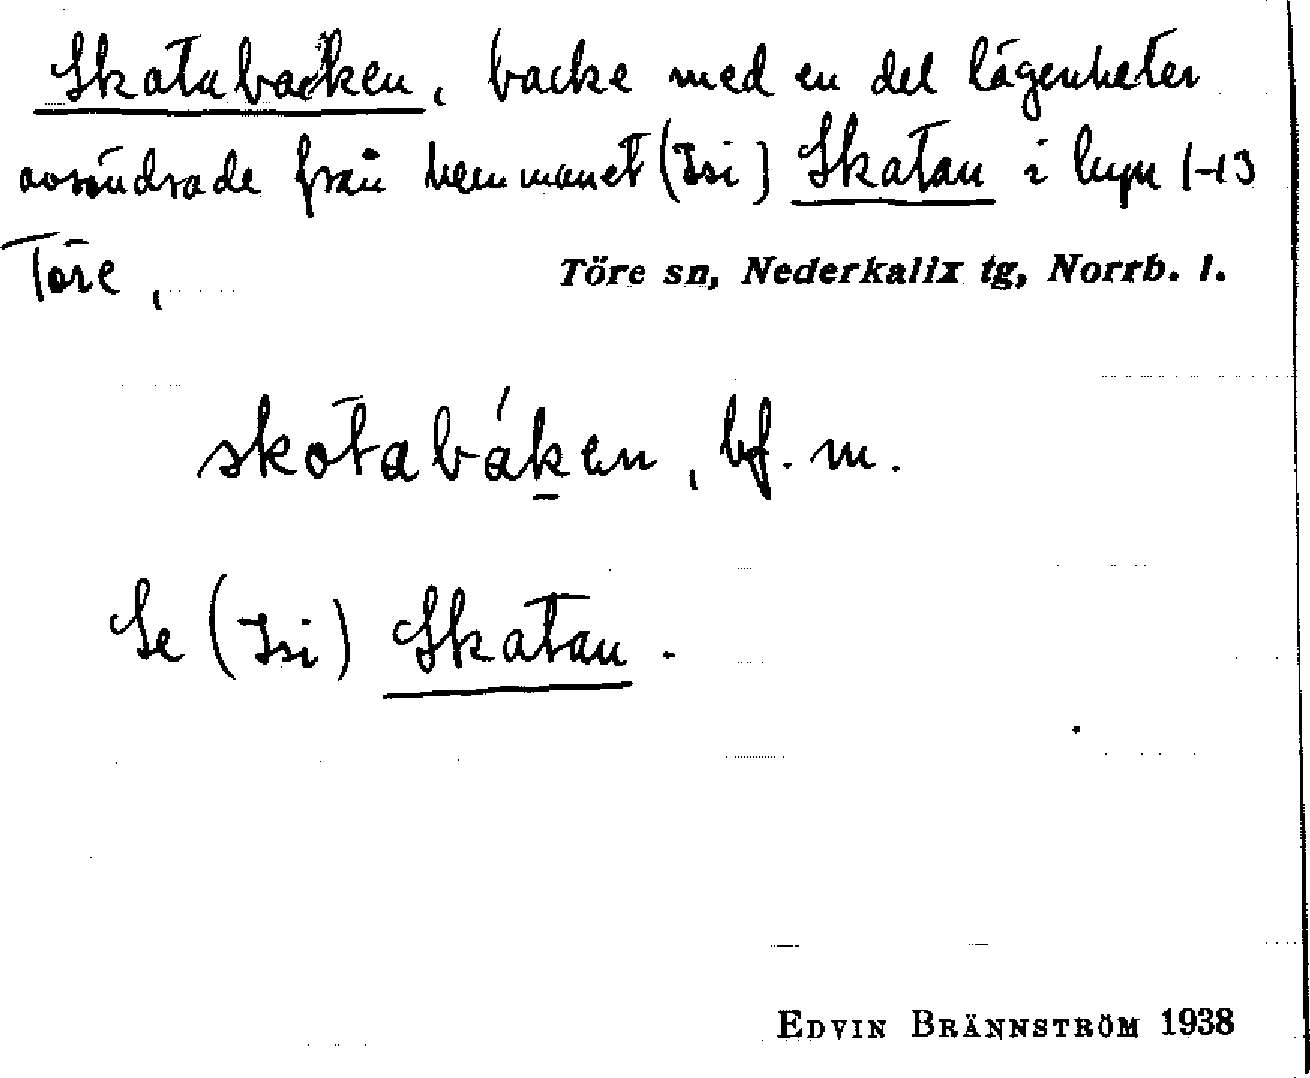 Skatabacken, backe med en del lägenheter
avsöndrade från hemmanet (Isi) Skatan i byn 1-13
Töre,
Töre sn, Nederkalix tg, Norrb. l.
skatabák̲en, bf. m.
Se (Isi) Skatan.
EDVIN BRÄNNSTRÖM 1938